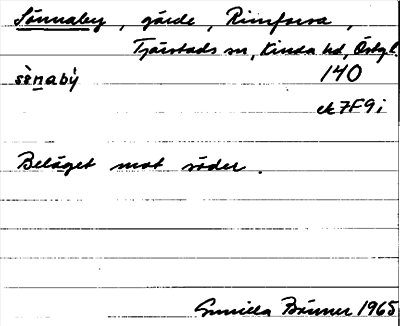 Sönnaby, gärde, Rimforsa,
Tjärstads sn, Kinda hd, Östgl.
sø̀naby̆́ 140
ek 7F9i
Beläget mot söder.
Gunilla Bönner 1965